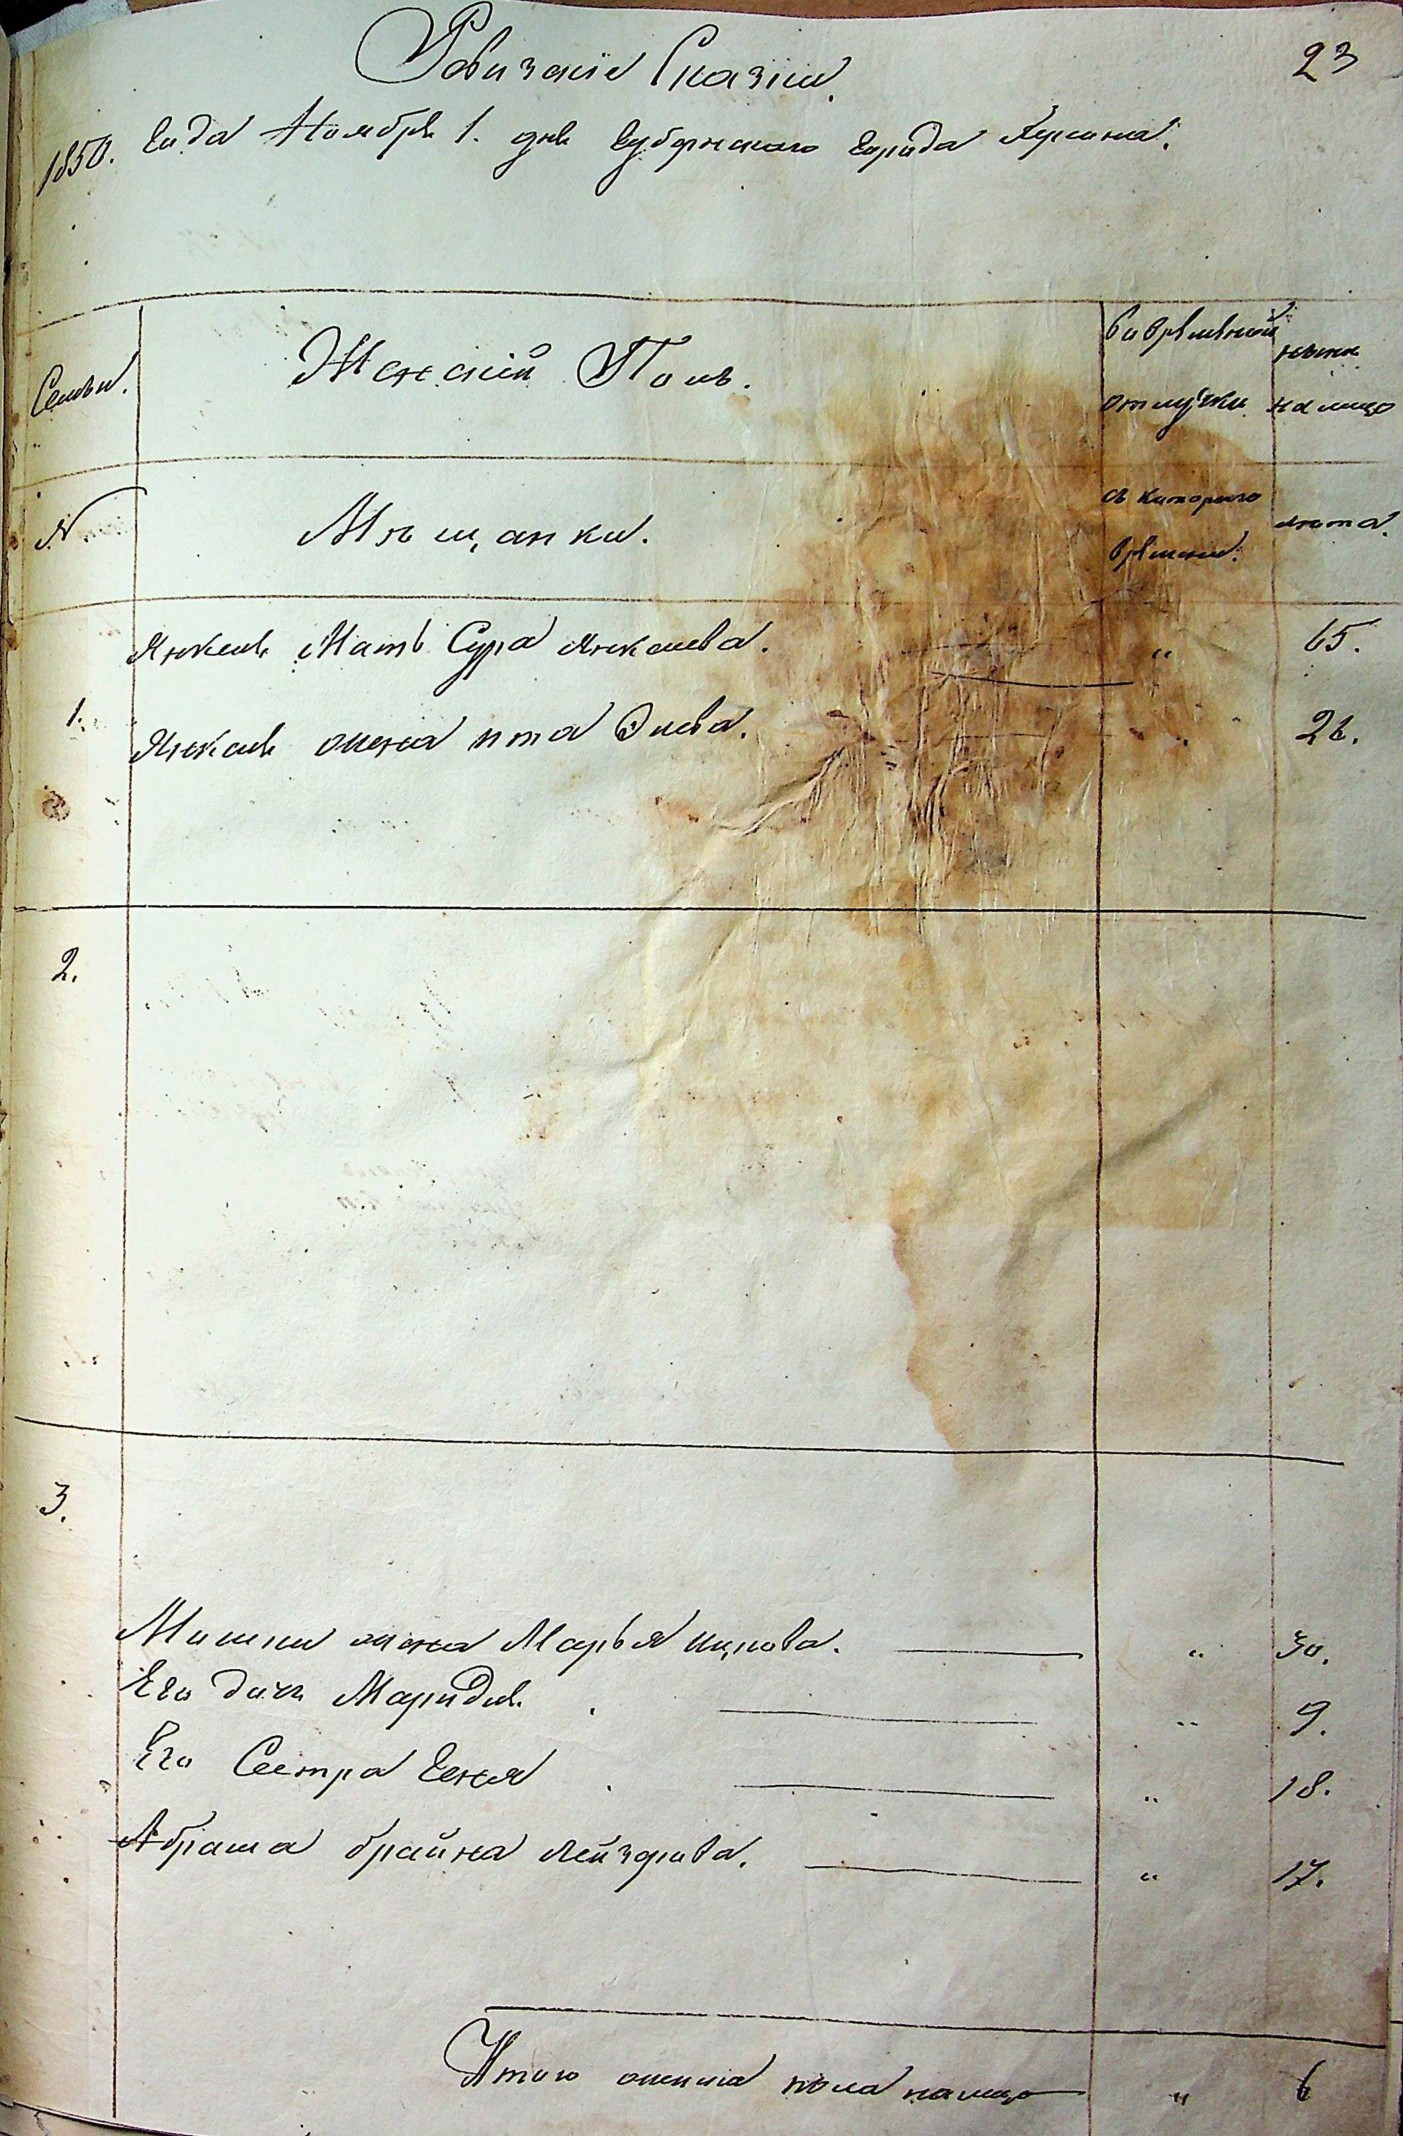 Ревизские Сказки. 23
1850. Года Ноября 1. дня Губернского города Херсона.
Семьи. Женский Полъ. Во временной отлучке ныне на лицо
N Мещанки. съ котораго времени. лета.
Янкеля Мать Сура Янкелева. " 65.
1. Янкеля жена Ита " 26.
2.
3.
жена Марья " 30.
Его дочь " 9.
Его Сестра Геня " 18.
Абрама Брайна Лейзерова. " 17.
Итого женска пола налицо " 6